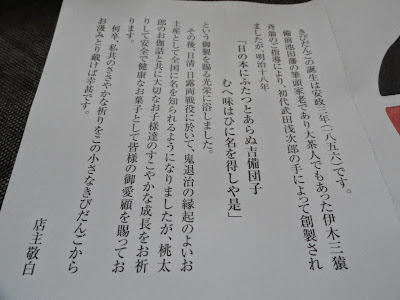 きびだんごの誕生は安政三年(一八五六)です。
備前池田藩の筆頭家老であり大茶人でもあった伊木三猿
斎翁のご指導により、初代武田浅次郎の手によって創製され
ましたが、明治十八年
「日の本にふたつとあらぬ吉備団子
むへ味はひに名を得しや是」
という御製を賜る光栄に浴しました。
その後、日清・日露両戦役に於いて、鬼退治の縁起のよいお
土産として全国に名を知られるようになりましたが、桃太
郎のお伽話と共に大切なお子様達のすこやかな成長をお祈
りして安全で健康なお菓子として皆様の御愛顧を賜ってお
ります。
何卒、私共のささやかな祈りをこの小さなきびだんごから
お汲みとり戴けば幸甚です。
店主敬白